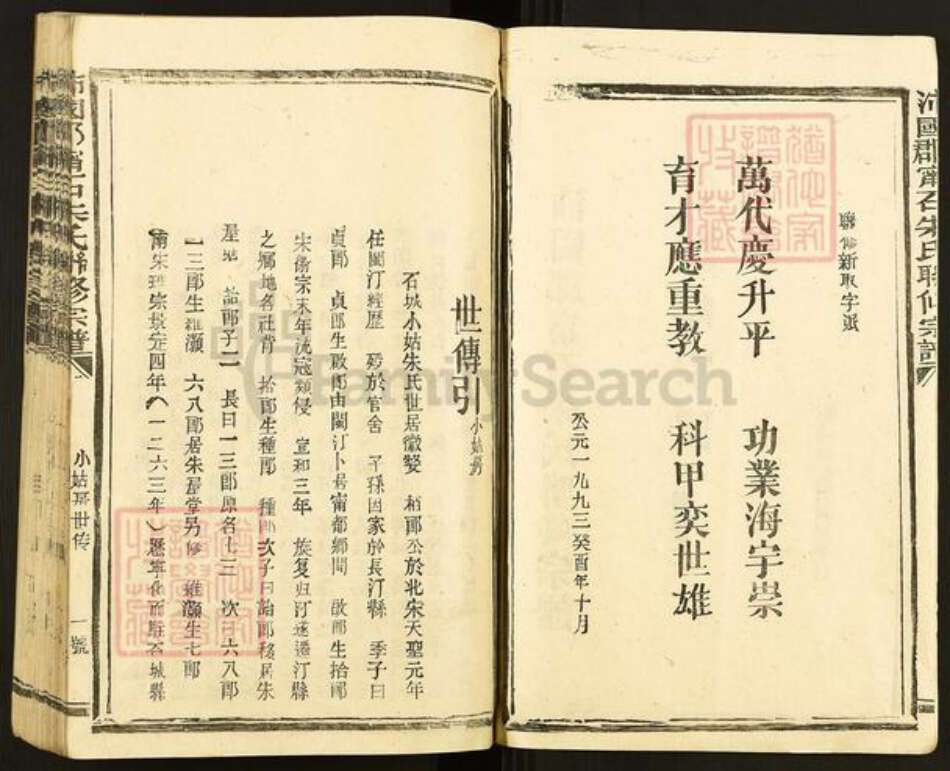 沛國郡甯石朱氏聯修宗譜
聯修新取字派
萬代慶升平 功業海宇崇
育才應重教 科甲奕世雄
公元一九九三癸酉年十月
世傳引 小姑房
石城小姑朱氏世居徽婺 栢郎公於北宋天聖元年
任閩汀經歷 歿於官舍 子孫因家於長汀縣 季子曰
貞郎 貞郎生啟郎由閩汀卜居甯都鄉間 啟郎生拾郎
宋徽宗末年流寇頻侵 宣和三年 族复归汀遂遷汀縣
之鄉地名社背 拾郎生種郎 種郎次子曰詒郎移居朱
屋地 詒郎子二 長曰一三郎原名七三 次曰六八郎
一三郎生維灝 六八郎居朱屋堂另修 維灝生七郎
南宋理宗景定四年(一二六三年)歷寧化而駐石城縣
沛國郡甯石朱氏聯修宗譜
小姑房世传
一號
FamilySearch